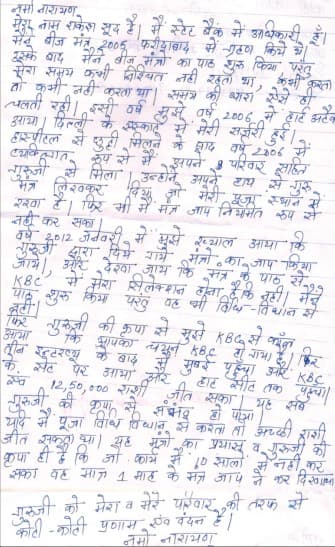 नमो नारायण
मेरा नाम राकेश सूद है। मैं स्टेट बैंक में अधिकारी हूँ।
मैंने बीज मंत्र 2005 फरीदाबाद में ग्रहण किये थे।
इसके बाद मैंने बीज मंत्रों का पाठ शुरू किया परंतु
मेरा समय कभी निश्चित नहीं रहता था, कभी करता
तो कभी नहीं करता था। समय की धारा ऐसे ही
चलती रही। इसी वर्ष मुझे वर्ष 2006 में हार्ट अटैक
आया। दिल्ली के में मेरी सर्जरी हुई।
हास्पीटल से छुट्टी मिलने के बाद वर्ष 2006 में
व्यक्तिगत रूप से मैं अपने परिवार सहित
गुरूजी से मिला। उन्होंने अपने हाथ से गुरू
मंत्र लिखकर दिया जो मेरी पूजा स्थान में
रखा है। फिर भी मैं मंत्र जाप नियमित रूप से
नहीं कर सका।
वर्ष 2012 जनवरी में मुझे ख्याल आया कि
गुरूजी द्वारा दिये गये मंत्रों का जाप किया
जाय, और देखा जाय कि मंत्र के पाठ से
KBC में मेरा सिलेक्शन होता है कि नहीं। मैंने
पाठ शुरू किया परंतु वह भी विधि-विधान से
नहीं।
फिर गुरूजी की कृपा से मुझे KBC से
आया कि आपका चयन KBC हो गया है। फिर
तीन के बाद मैं मुंबई पहुंचा और KBC
के सेट पर आया और हाट सीट तक पहुंचा।
एवं 12,50,000 राशी जीत सका। यह सब
गुरूजी की कृपा से संभव हो पाया।
यदि मैं पूजा विधि विधान से करता तो अच्छी राशी
जीत सकता था। यह मंत्रों का प्रभाव व गुरूजी की
कृपा ही है कि जो कार्य मैं 10 सालों से नहीं कर
सका वह मात्र 1 माह के मंत्र जाप ने कर दिखाया
गुरूजी को मेरा व मेरे परिवार की तरफ से
कोटी-कोटी प्रणाम एवं वंदन है।
नमो नारायण